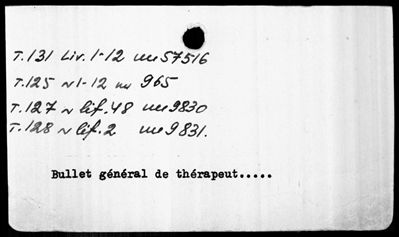 T.131 Liv. 1-12 инв 57516
T.125 N 1-12 инв 965
T.127 N Lif. 48 инв 9830
T.128 N Lif. 2 инв 9831.
Bullet général de thérapeut.....